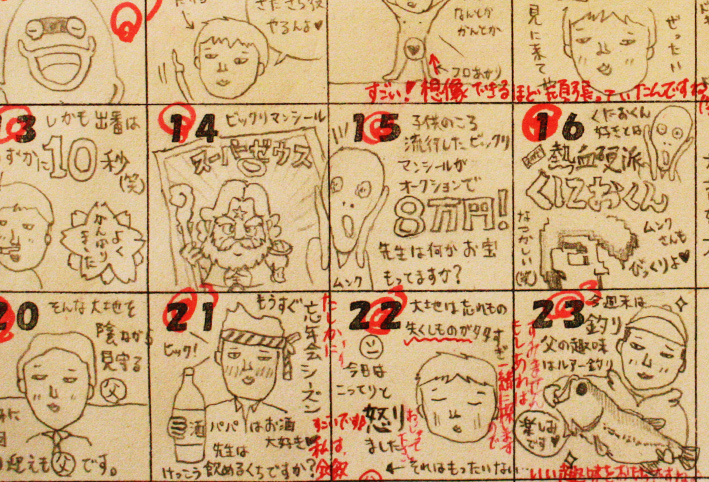 さたさら役
やるんよ♥
なんてか
かんてか
フロあがり
すごい！想像できるほど頑張っていたんですね
ぜったい
見に来て
13
しかも出番は
ずかに
10秒
(笑)
よく
がんばり
ました
14
ビックリマンシール
スーパーゼウス
15
子供のころ
流行したビックリ
マンシールが
オークションで
8万円!
先生は何かお宝
もってますか?
ムンク
16
くにおくん
好きとは
熱血硬派
くにおくん
なつかしい
(笑)
ムンク
さんも
びっくりよ♥
20
そんな大地を
陰ながら
見守る
父
迎えも父です。
21
もうすぐ
忘年会シーズン
ビック!
酒
パパはお酒
大好き♥
先生は
けっこう飲めるくちですか?
たしかに
すごいです!
私は
22
大地は忘れもの
失くしものが多々
今日は
こってりと
怒り
ました
すぐ一緒に探しますので
←それはもったいない
23
今週末は
釣り
父の趣味
はルアー釣り
楽しみ
です♥
すみません
もしあれば
いい趣味をお持ちですね